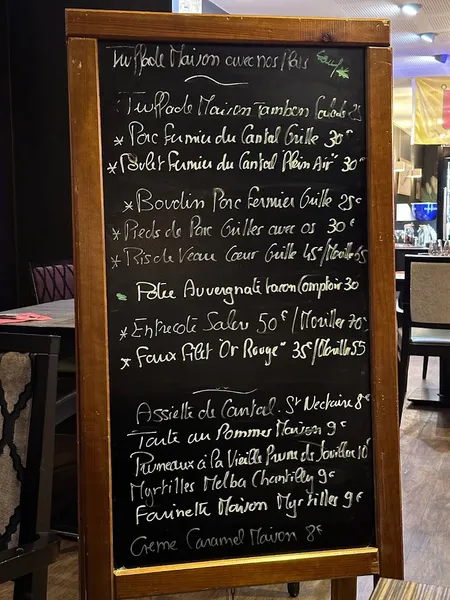 Truffade Maison avec nos plats
Truffade Maison Jambon Salade 25
* Porc Fermier du Cantal Grillé 30€
* Poulet Fermier du Cantal "Plein Air" 30€
* Boudin Porc Fermier Grillé 25€
* Pieds de Porc Grillés avec os 30€
* Ris de Veau Cœur Grillé 45€/Morilles 65
Potée Auvergnate Façon Comptoir 30
* Entrecôte Salers 50€/Morilles 70€
* Faux Filet "Or Rouge" 35€/Morilles 55
Assiette de Cantal. St Nectaire 8€
Tarte aux Pommes Maison 9€
Pruneaux à la Vieille Prune de Souillac 10€
Myrtilles Melba Chantilly 9€
Farinette Maison Myrtilles 9€
Creme Caramel Maison 8€